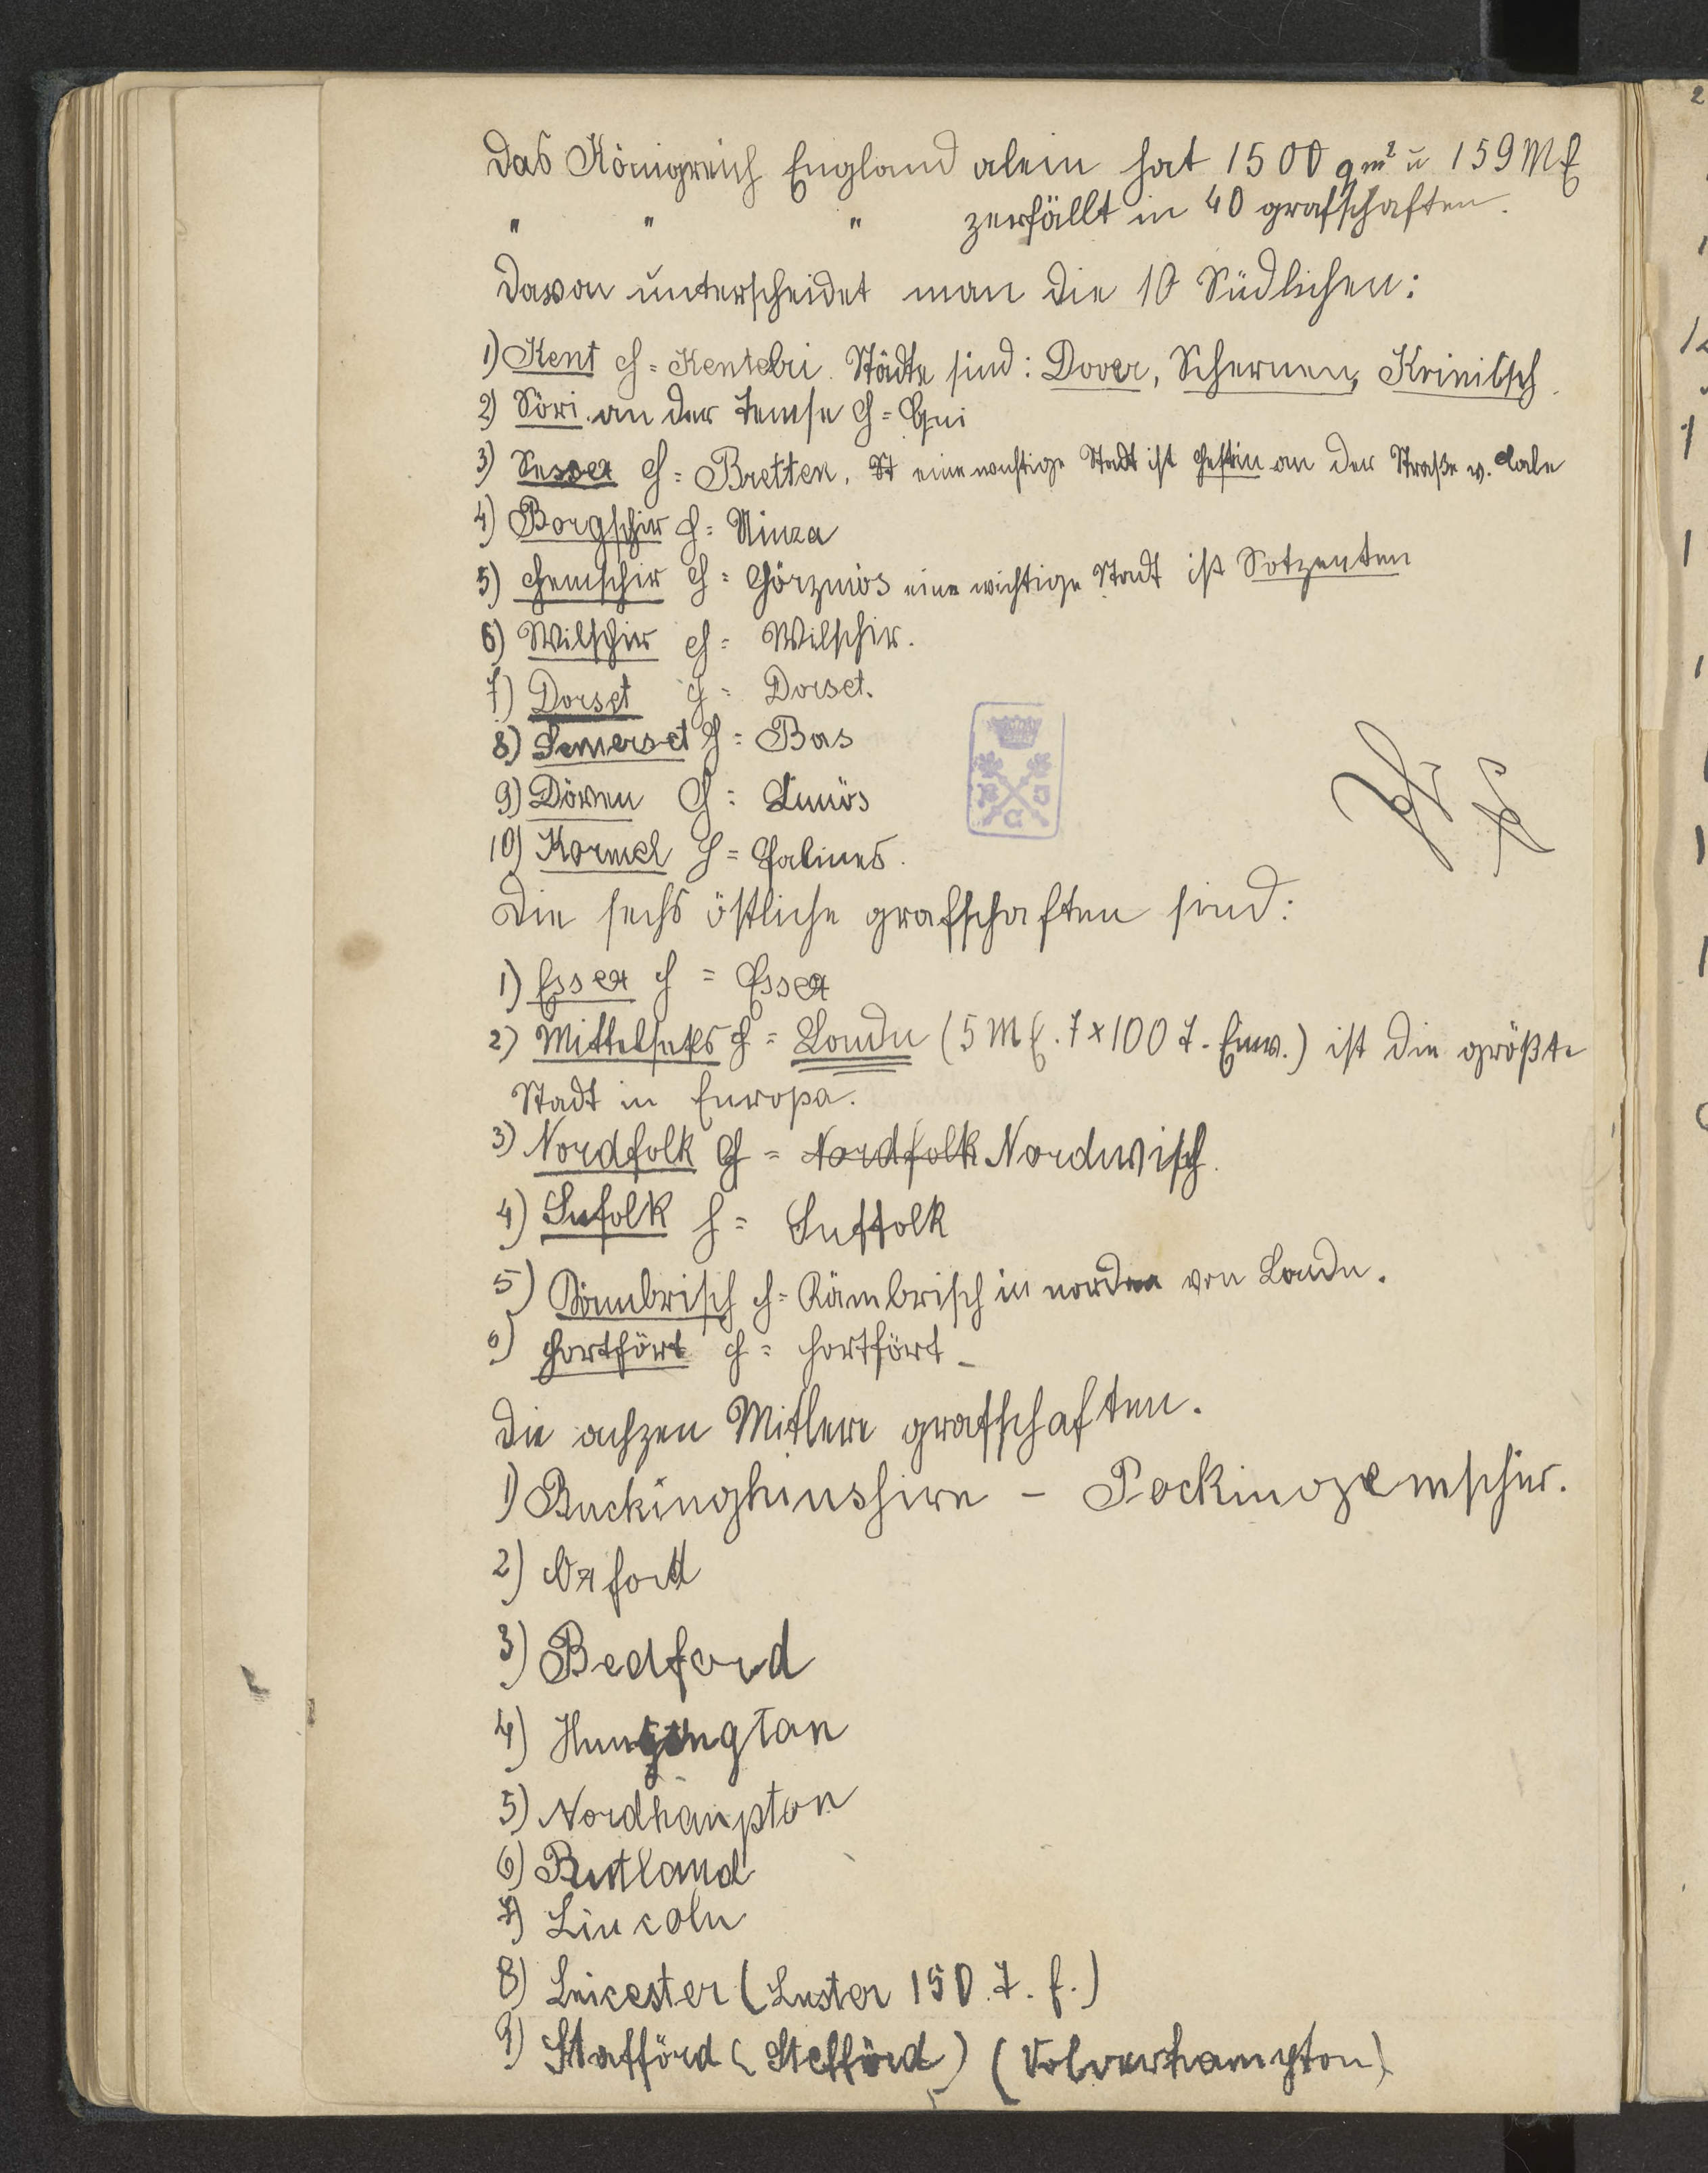 Das Königreich England alein hat 1500 qm² ü 159 M E
" " " zerfällt in 40 grafschaften.
Davon unterscheidet man die 10 Südlichen:
1) Kent H = Kentebri. Städte sind: Dover, Schernen, Krinitsch.
2) Söri an der Temse H =
3) Sussex H = Bretten. St eine wichtige Stadt ist Hestin an der Straße v. Cale
4) Borgschir H = Ninza
5) Hemschir H = Görzmös eine wichtige Stadt ist Sotzenten
6) Wilschir H = Wilschir.
7) Dorset H = Dorset.
8) Somerset H = Bas
9) Döwen H =
10) Kornvel H = Falines.
Die sechs östliche grafschaften sind:
1) Essex H = Essex
2) Mittelseks H = Londn (5 M E. 7x100 T. Einw.) ist die größte
Stadt in Europa.
3) Nordfolk H = Nordfolk Nordwisch.
4) Sufolk H = Suffolk
5) Kömbrisch H = Kämbrisch in norden von Londn.
6) Hortfört H = Hortfört
Die achzen Mitlere grafschaften.
1) Buckinghinshire - Pockingemschir.
2) Oxford
3) Bedford
4) Hungtingtan
5) Nordhampton
6) Rutland
7) Lincoln
8) Leicester (Lester 150. T. E.)
9) Stafförd (Stefförd) (Volverhampton)